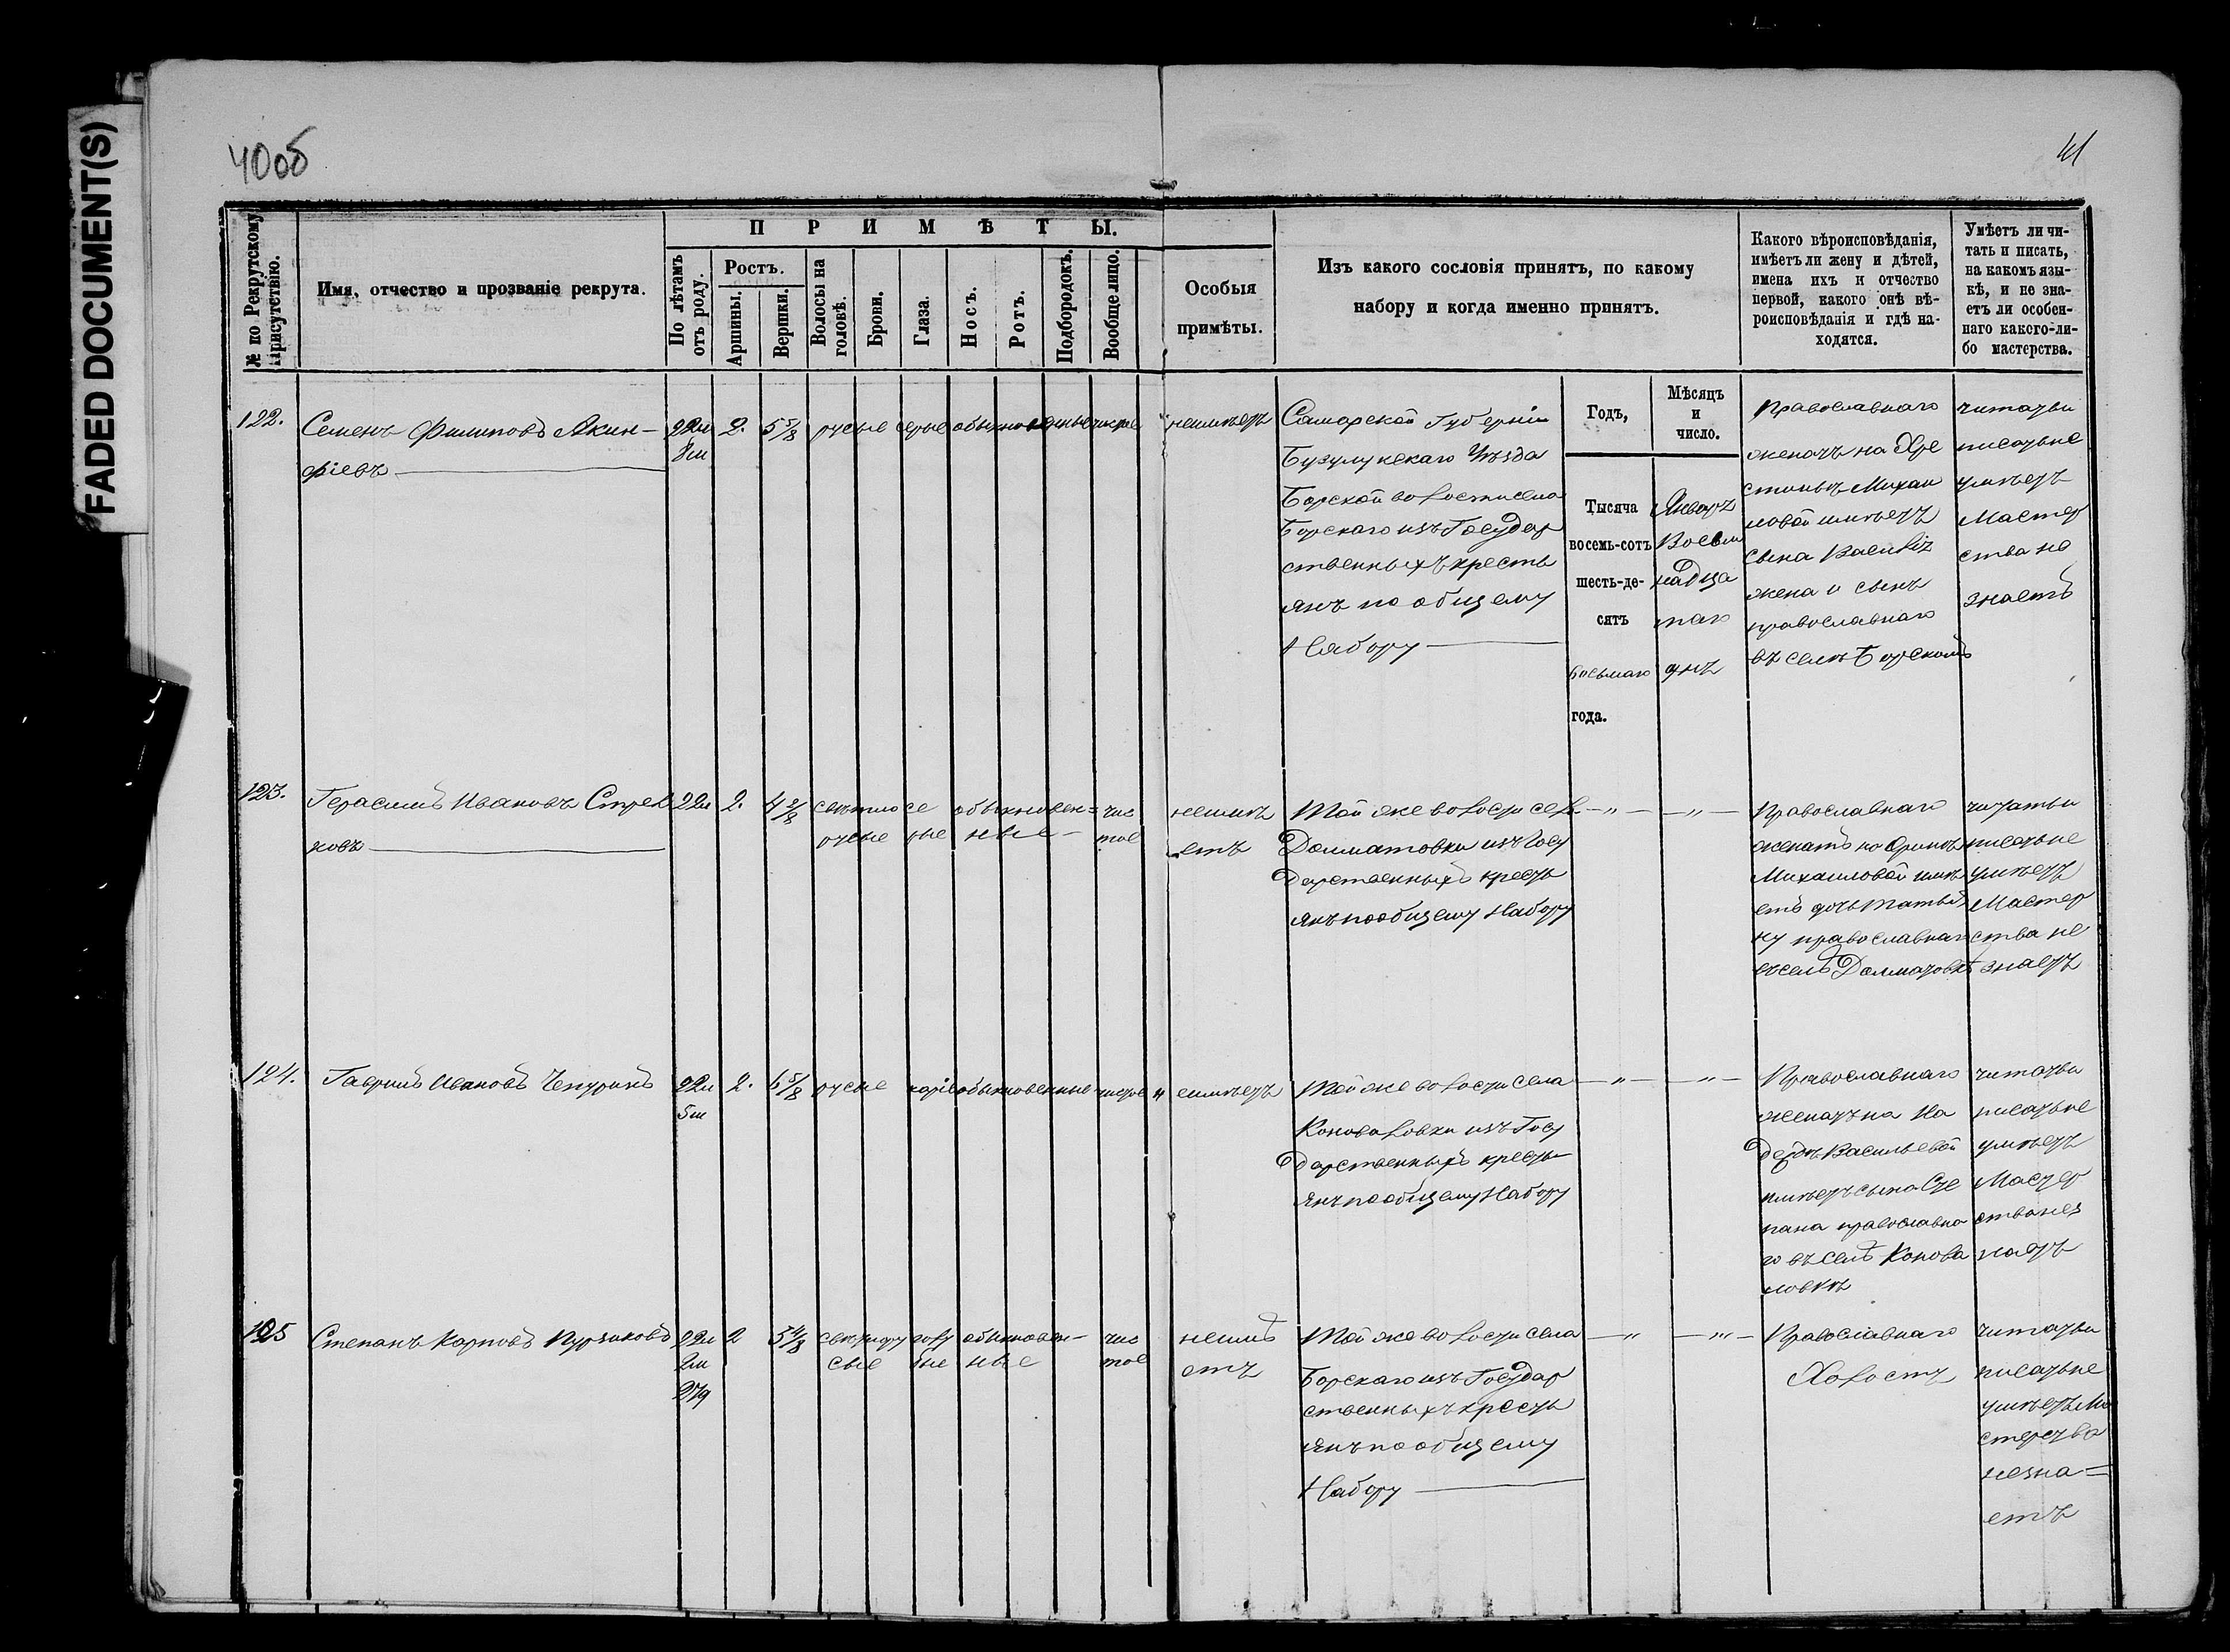 FADED DOCUMENT(S)
40об
41
№ по Рекрутскому Присутствію.
Имя, отчество и прозваніе рекрута.
ПРИМѢТЫ.
По лѣтамъ отъ роду.
Ростъ.
Аршины.
Вершки.
Волосы на головѣ.
Брови.
Глаза.
Носъ.
Ротъ.
Подбородокъ.
Вообще лицо.
Особыя
примѣты.
Изъ какого сословія принятъ, по какому
набору и когда именно принятъ.
Какого вѣроисповѣданія,
имѣетъ ли жену и дѣтей,
имена ихъ и отчество
первой, какого онѣ вѣ-
роисповѣданія и гдѣ на-
ходятся.
Умѣетъ ли чи-
тать и писать,
на какомъ язы-
кѣ, и не зна-
етъ ли особен-
наго какого-ли-
бо мастерства.
122.
Семенъ Филиповъ Акин-
фіевъ
22л
8м
2.
5 5/8
русые
серые
обыкновенные
чистое
неимѣетъ
Самарской Губерніи
Бузулукскаго Уѣзда
Борской волости села
Борскаго изъ Государ
ственныхъ кресть
янъ по общему
Набору
Годъ,
Тысяча
восемь-сотъ
шесть-де-
сятъ
восьмаго
года.
Мѣсяцъ
и
число.
Январъ
Восем
надца
таго
днъ
Православнаго
женатъ на Хре
стинѣ Михаи
ловой имѣетъ
сына Василія
жена и сынъ
православнаго
въ селѣ Борскомъ
читать и
писать не
умѣетъ
Мастер
ства не
знаетъ
123.
Герасимъ Ивановъ Стрел
ковъ
22л
2.
4 2/8
свѣтло
русые
се
рые
обыкновен=
ные
чис
тое
неимѣ
етъ
Той же волости села
Долматовки изъ Госу
дарственныхъ кресть
янъ по общему Набору
— " —
— " —
Православнаго
женатъ на Аринѣ
Михаиловой имѣ
етъ дочь Татья
ну православнаго
въ селѣ Долматовкѣ
читать и
писать не
умѣетъ
Мастер
ства не
знаетъ
124.
Гаврилъ Ивановъ Чепуринъ
22л
5м
2.
6 5/8
русые
каріе
обыкновенные
чистое
неимѣетъ
Той же волости села
Коноваловки изъ Госу
дарственныхъ кресть
янъ по общему Набору
— " —
— " —
Православнаго
женатъ на На
деждѣ Васильевой
имѣетъ сына Сте
пана православна
го въ селѣ Конова
ловкѣ
читать и
писать не
умѣетъ
Мастер
ства не з
наетъ
125
Степанъ Карповъ Пурзаковъ
22л
2м
27д
2
5 4/8
свѣтлору
сые
голу
бые
обыкновен—
ные
чис
тое
неимѣ
етъ
Той же волости села
Борскаго изъ Государ
ственныхъ кресть
янъ по общему
Набору
— " —
— " —
Православнаго
Холостъ
читать и
писать не
умѣетъ Ма
стерства
незна=
етъ